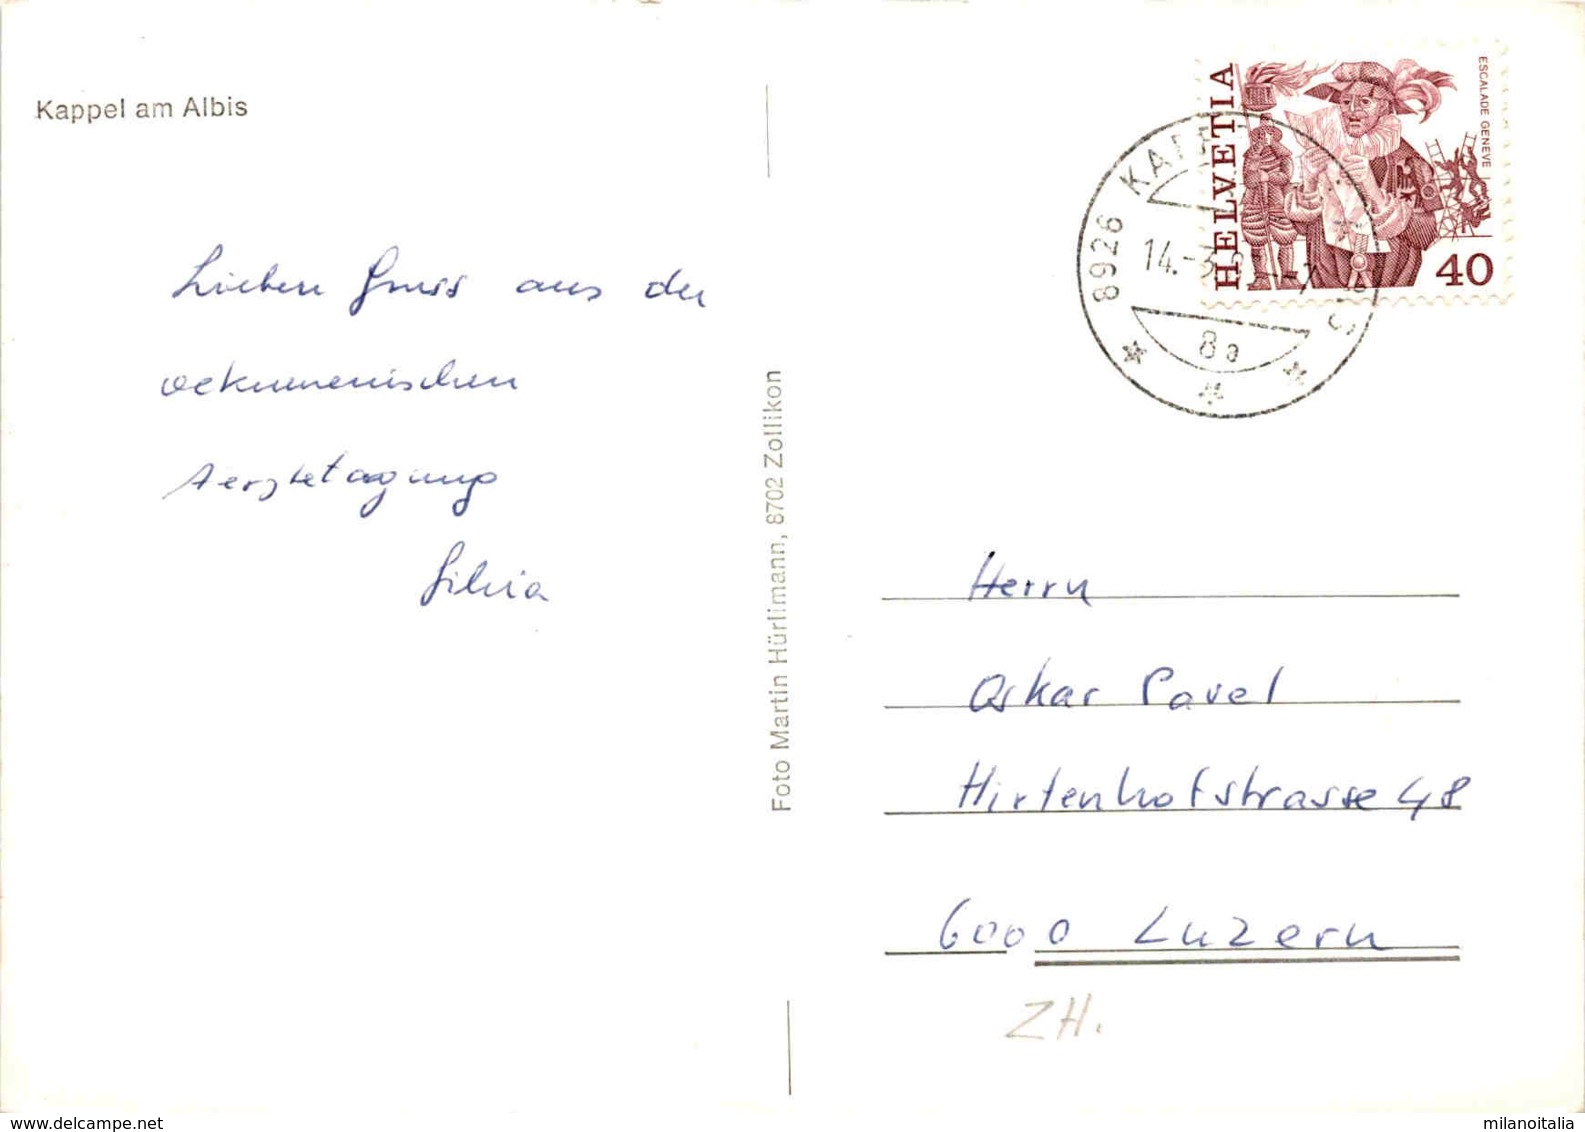 Kappel am Albis
Lieben Gruss aus der
oekumenischen
Aerztetagung
Silvia
Foto Martin Hürlimann, 8702 Zollikon
HELVETIA
ESCALADE GENEVE
40
8926 KAPPEL
14.-3.
8a
Herrn
Oskar Pavel
Hirtenhofstrasse 48
6000 Luzern
ZH.
www.delcampe.net
milanoitalia